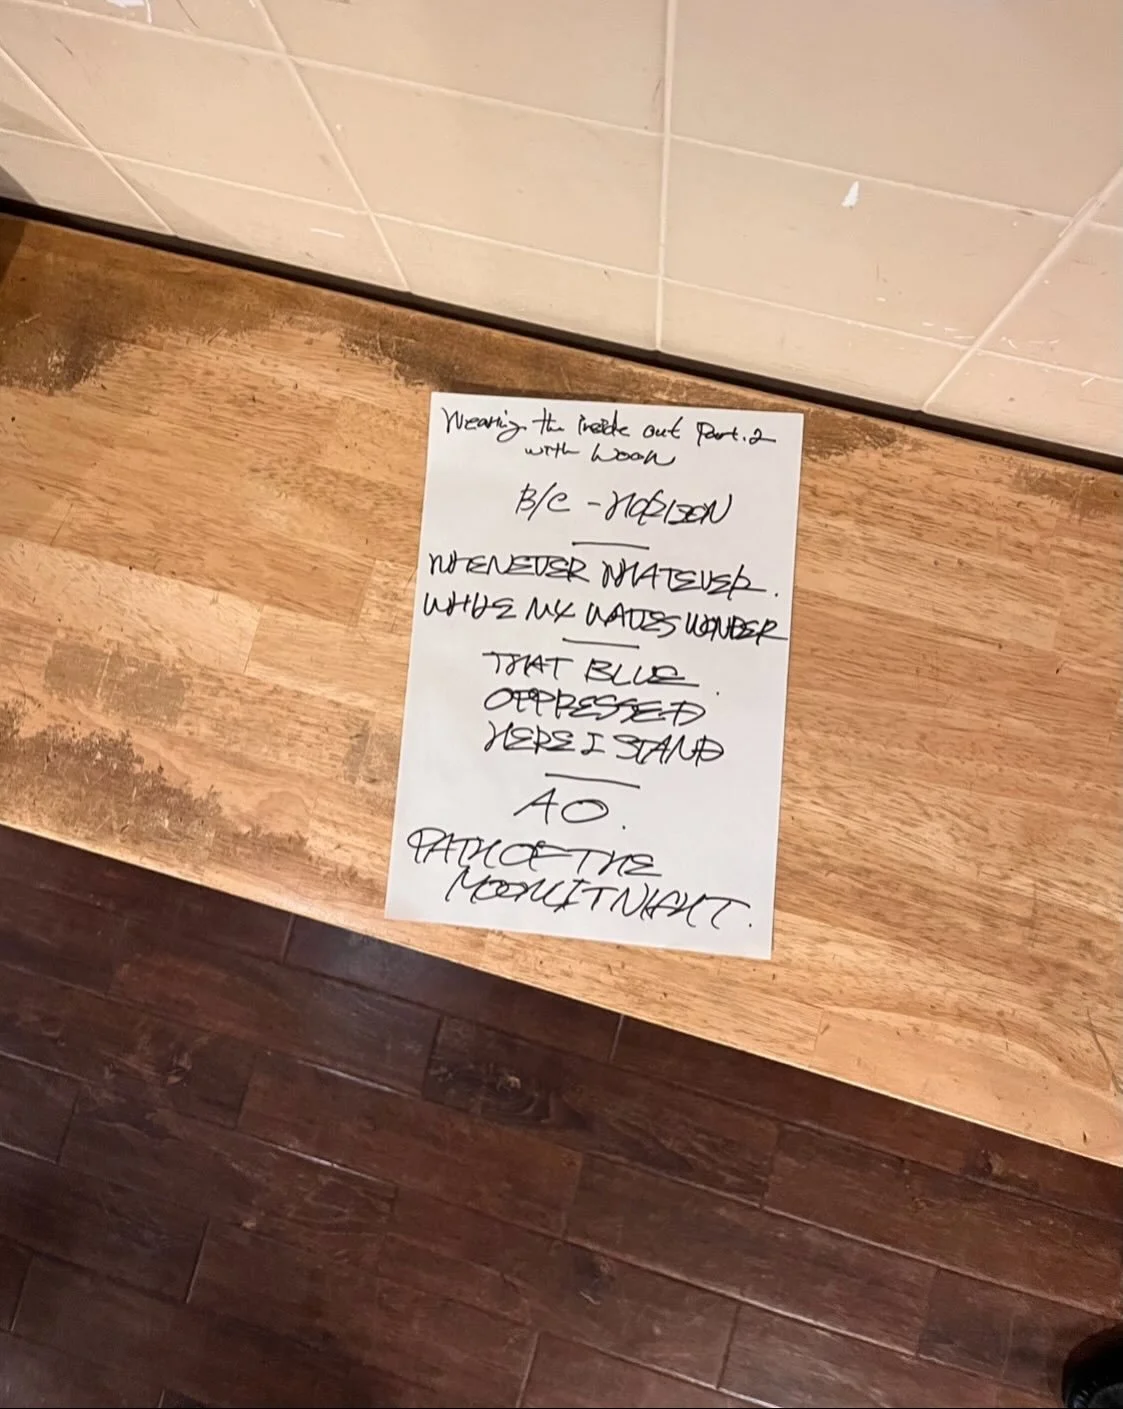 Wearing the inside out Part.2
with Woon
B/C - HORIZON
WHENEVER WHATEVER.
WHILE MY WAVES WONDER
THAT BLUE.
OPPRESSED
HERE I STAND
AO.
PATH OF THE
MOONLIT NIGHT.